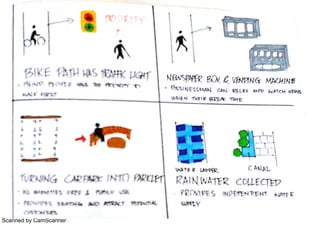 PRIORITY
BIKE PATH HAS TRAFFIC LIGHT
PEOPLE HAS THE PRIORITY TO
WALK FIRST
NEWSPAPER BOX & VENDING MACHINE
BUSINESSMAN CAN RELAX AND WATCH NEWS
WHEN THEIR BREAK TIME
TURNING CARPARK INTO PARKLET
ALL AMENITIES FREE & PUBLIC USE
PROVIDES SEATING AND ATTRACT POTENTIAL
CUSTOMERS
WATER LADDER
CANAL
RAINWATER COLLECTED
PROVIDES INDEPENDENT WATER
SUPPLY
Scanned by CamScanner